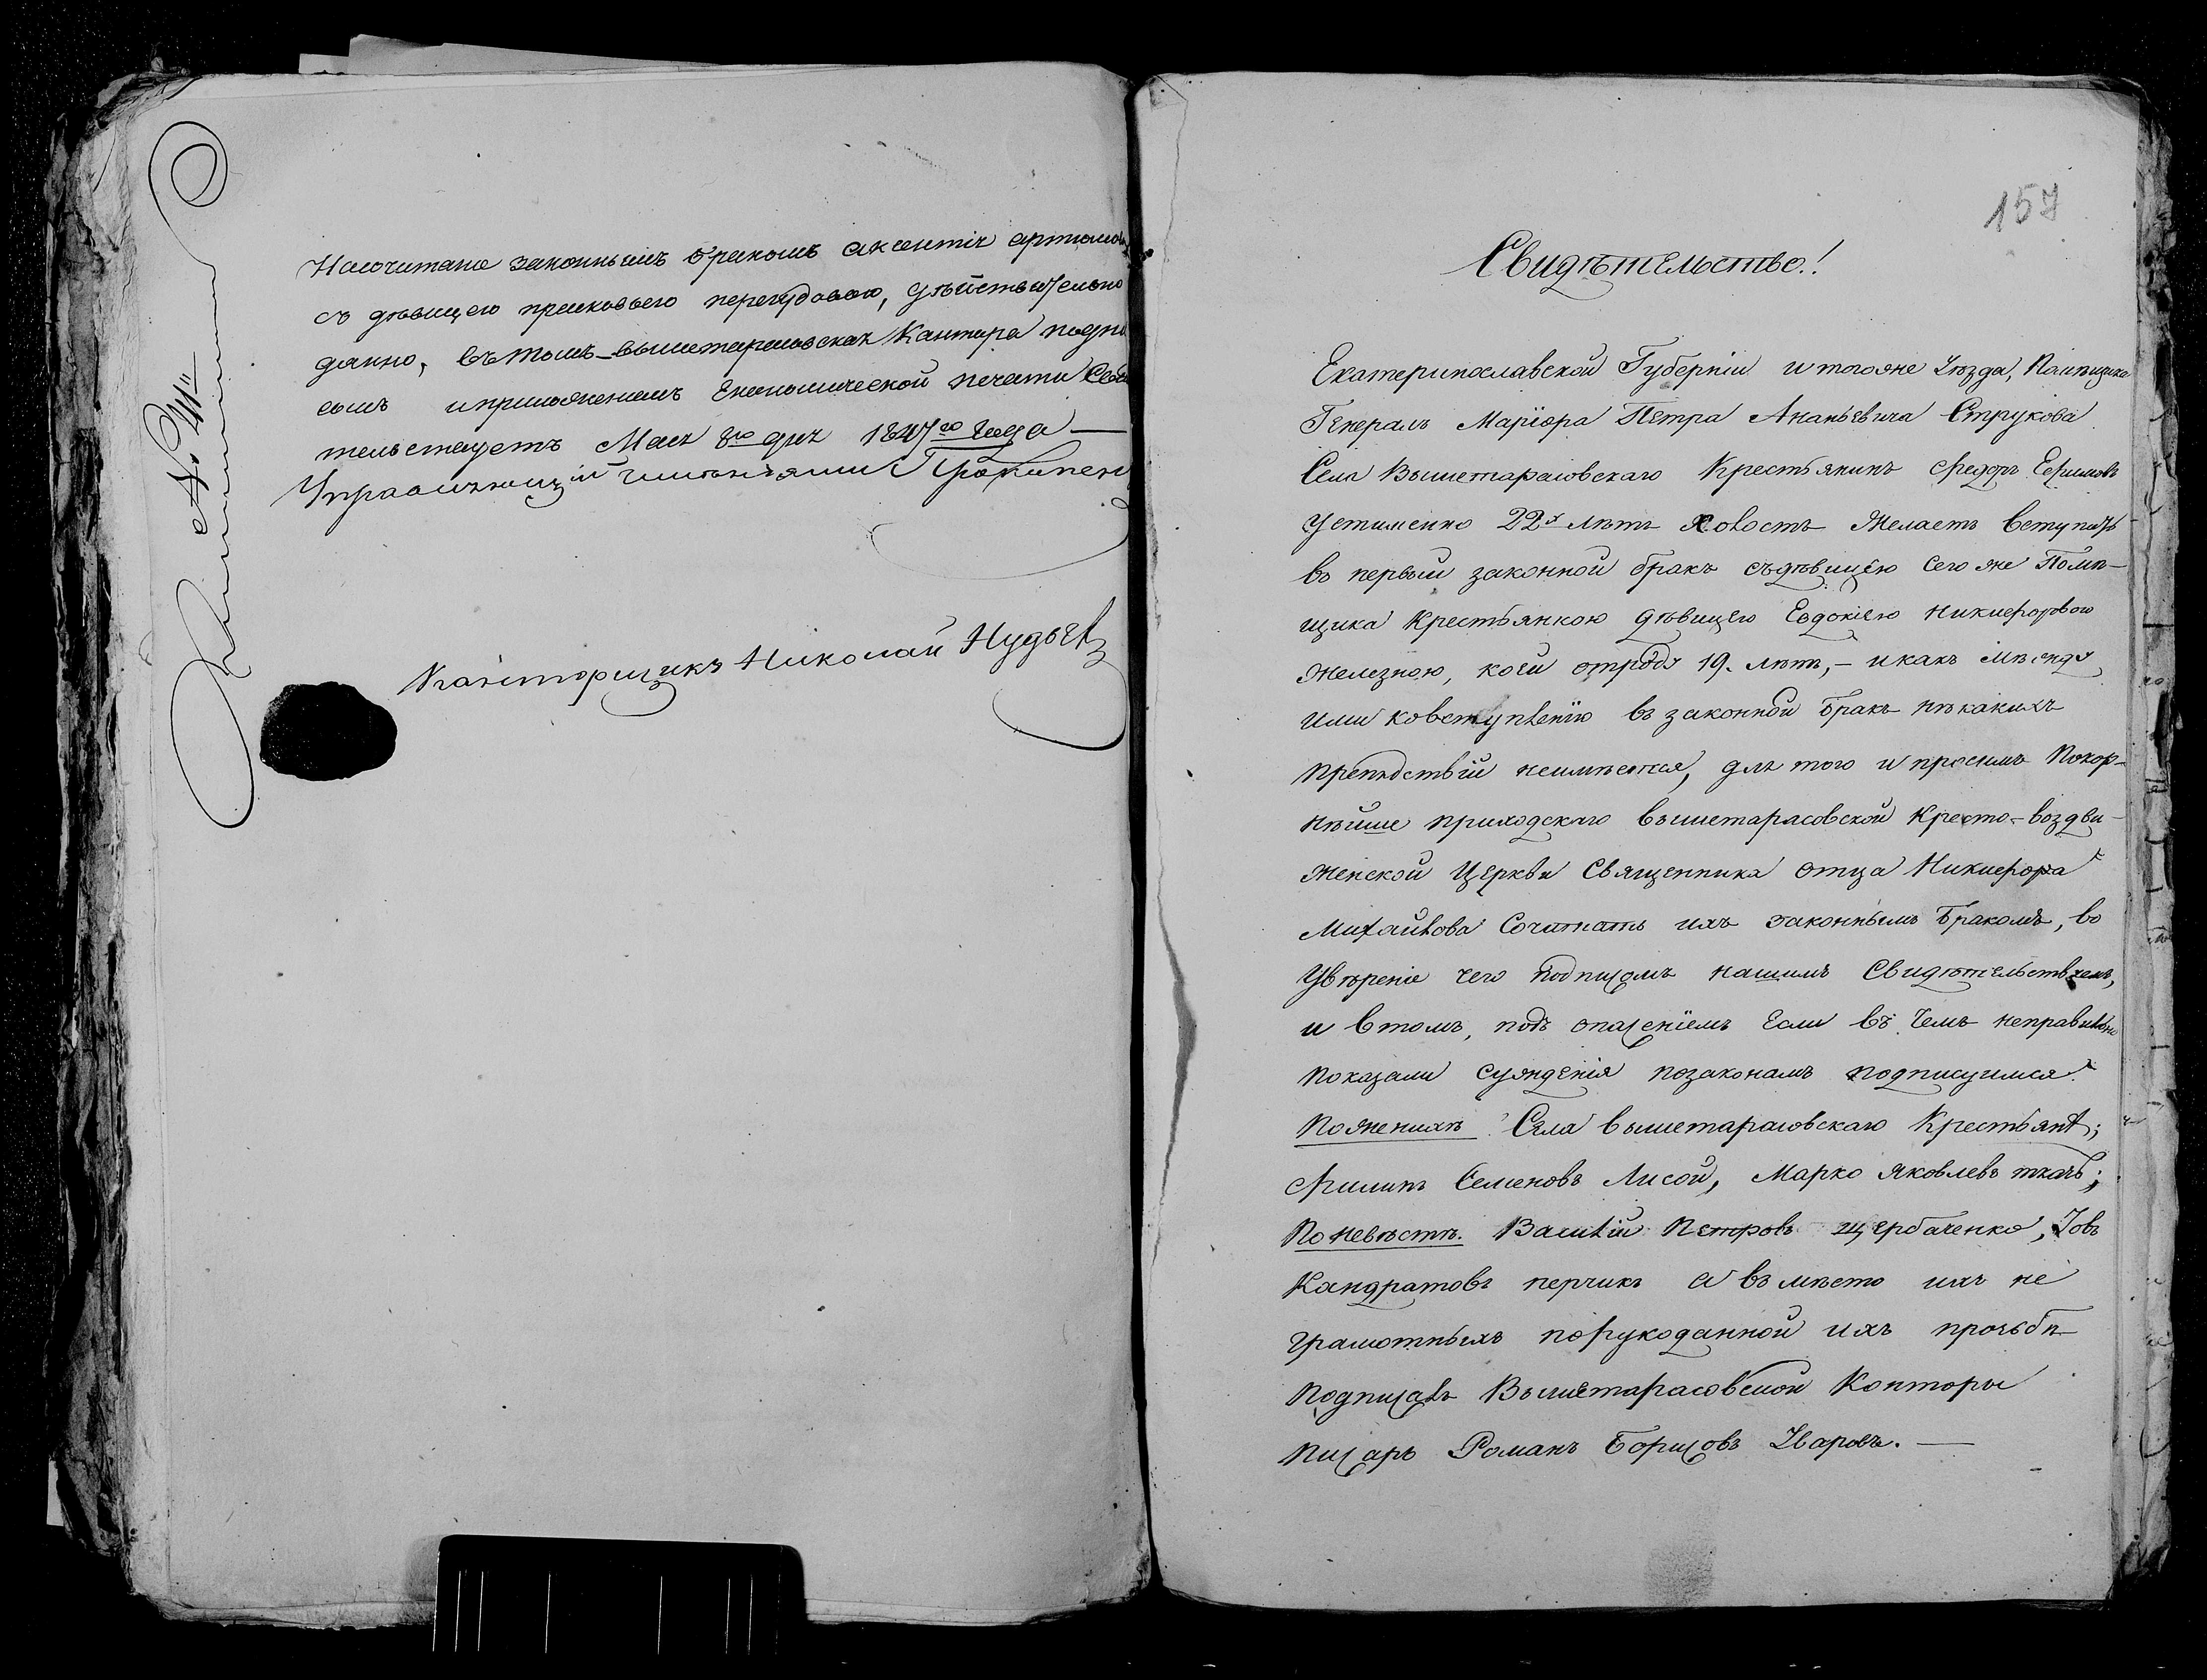 Насочитание законнымъ бракомъ Аксентія
съ дѣвицею Прасковьею перегудовою, дѣйствительно
данно, въ томъ вышетарасовская Кантора подпи
сомъ и приложениемъ Економической печати Свидѣ
тельствуетъ Мая 8го дня 1847го Года —
Управляющій имѣніями
Канторщикъ Николай Нудьга
№
157
Свидѣтельство!
Екатеринославской Губерніи и тогоже Уѣзда, Помѣщика
Генералъ Маріора Петра Ананьевича Струкова
Села Вышетарасовскаго Крестьянинъ Федоръ Ефимовъ
Устименко 22х лѣтъ холостъ Желаетъ вступить
во первый законной бракъ съдѣвицею сего же Помѣ-
щика Крестьянкою дѣвицею Евдокіею Никифоровою
Железною, коей отроду 19. лѣтъ,- и какъ между
ими ковступленію въ законной бракъ нѣкакихъ
препядствій неимѣется, для того и просимъ Покор-
нѣйше приходскаго вышетарасовской Кресто-воздви-
женской Церкви Священника отца Никифора
Михайлова Сочитать ихъ законнымъ Бракомъ, во
увѣреніе чего подписомъ нашимъ Свидѣтельствуемъ,
и втомъ, подъ опасеніемъ Если въ чемъ неправильно
показали сужденія позаконамъ подписуимся.
По женихѣ Села вышетарасовскаго Крестьянѣ;
Филипъ Семеновъ Лисой, Марко Яковлевъ ткачь;
По невѣстѣ. Василій Петровъ щербаченко, Іовъ
Кандратовъ перчикъ а въмѣсто ихъ не
грамотныхъ порукоданной ихъ прозьбѣ
подписалъ Вышетарасовской Конторы
писарь Романъ Борисовъ Уваровъ. —